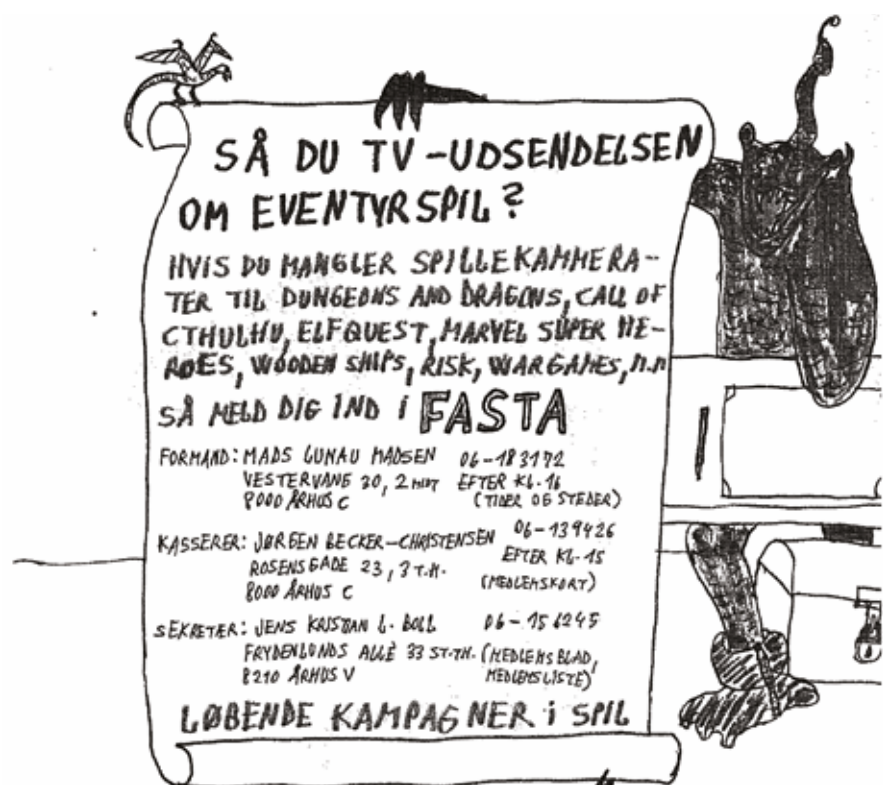 SÅ DU TV-UDSENDELSEN
OM EVENTYRSPIL?
HVIS DU MANGLER SPILLEKAMMERA-
TER TIL DUNGEONS AND DRAGONS, CALL OF
CTHULHU, ELFQUEST, MARVEL SUPER HE-
ROES, WOODEN SHIPS, RISK, WARGAMES, M.M
SÅ MELD DIG IND i FASTA
FORMAND: MADS LUNAU MADSEN 06-183172
VESTERVANG 30, 2 MIDT EFTER KL. 16
8000 ÅRHUS C (TIDER OG STEDER)
KASSERER: JØRGEN BECKER-CHRISTENSEN 06-139426
ROSENSGADE 23, 3 T.H. EFTER KL. 15
8000 ÅRHUS C (MEDLEMSKORT)
SEKRETÆR: JENS KRISTIAN L. BOLL 06-156245
FRYDENLUNDS ALLÈ 33 ST.TH. (MEDLEMSBLAD,
8210 ÅRHUS V MEDLEMSLISTE)
LØBENDE KAMPAGNER i SPIL